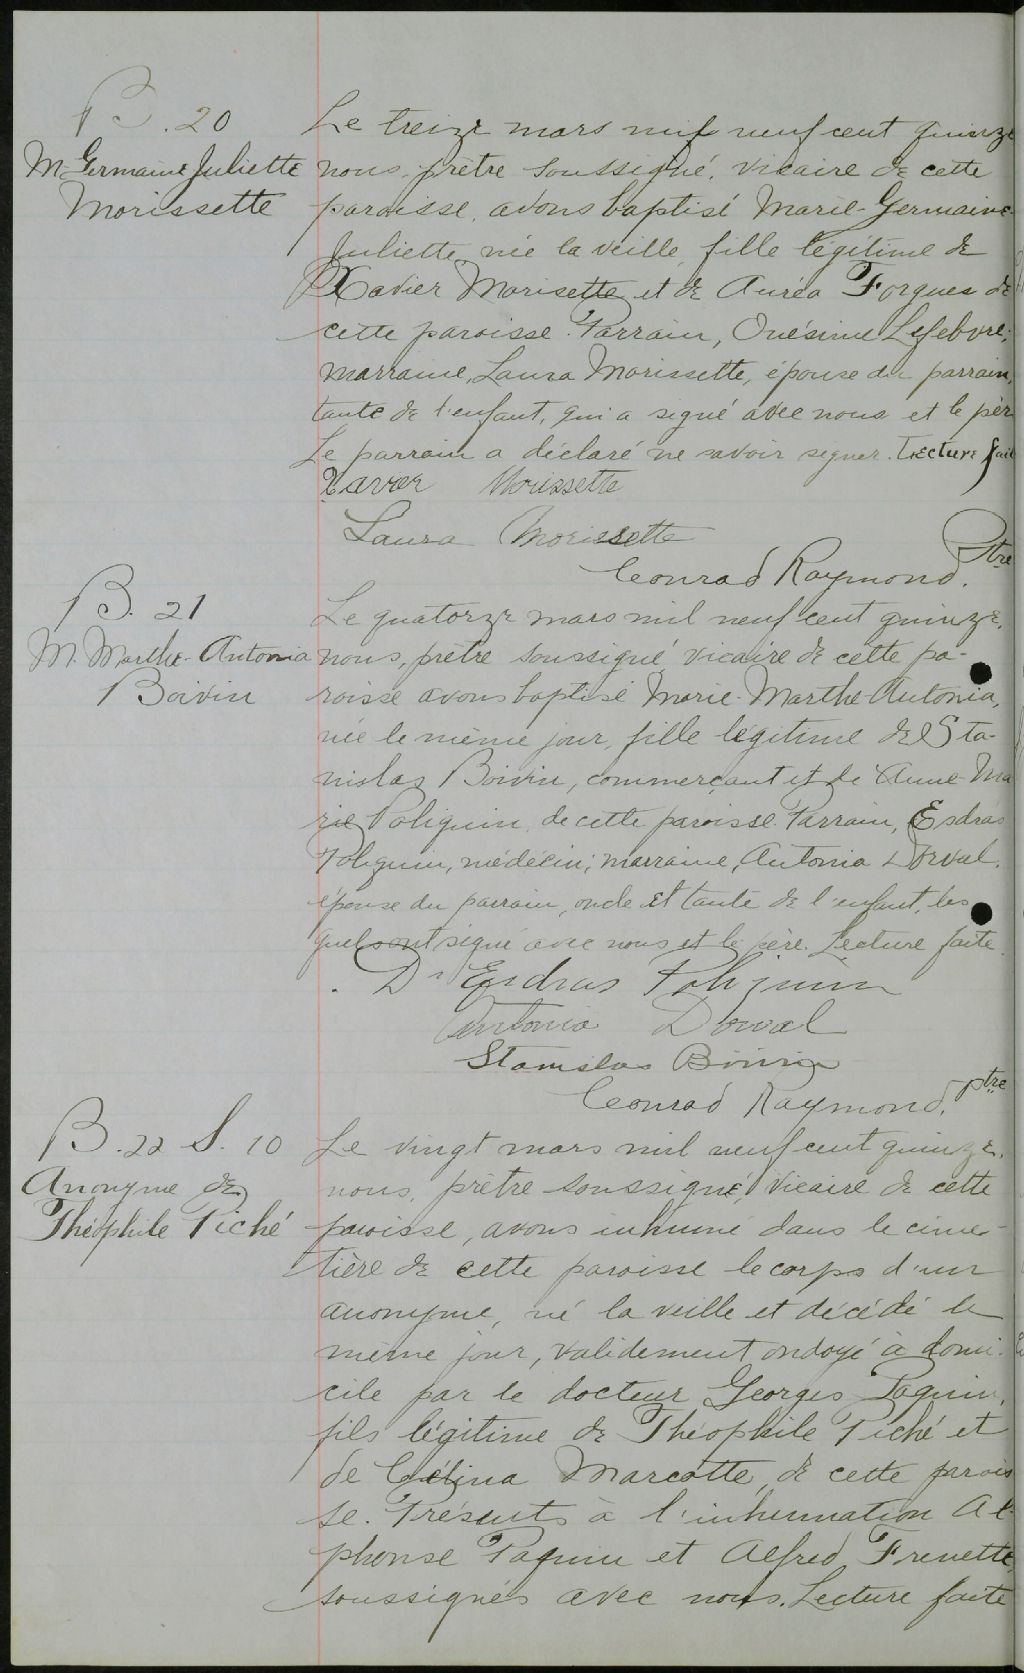 B. 20
M. Germaine Juliette
Morissette
Le treize mars mil neuf cent quinze
nous, prêtre soussigné, vicaire de cette
paroisse, avons baptisé Marie-Germaine-
Juliette, née la veille, fille légitime de
Xavier Morisette et de Auréa Forgues de
cette paroisse. Parrain, Onésime Lefebvre,
marraine, Laura Morissette, épouse du parrain,
tante de l'enfant, qui a signé avec nous et le pèr
Le parrain a déclaré ne savoir signer. Lecture fait
Xavier Morissette
Laura Morissette
Conrad Raymond, Ptre
B. 21
M. Marthe-Antonia
Boivin
Le quatorze mars mil neuf cent quinze,
nous, prêtre soussigné vicaire de cette pa-
roisse avons baptisé Marie-Marthe-Antonia,
née le même jour, fille légitime de Sta-
nislas Boivin, commerçant et de Anne-Ma
rie Poliquin, de cette paroisse. Parrain, Esdras
Poliquin, médecin; marraine, Antonia Dorval,
épouse du parrain, oncle et tante de l'enfant, les
quels ont signé avec nous et le père. Lecture faite.
Dr Esdras Poliquin
Antonia Dorval
Stanislas Boivin
Conrad Raymond, ptre
B. 22 S. 10
Anonyme de
Théophile Piché
Le vingt mars mil neuf cent quinze,
nous, prêtre soussigné, vicaire de cette
paroisse, avons inhumé dans le cime-
tière de cette paroisse le corps d'un
anonyme, né la veille et décédé le
même jour, validement ondoyé à domi-
cile par le docteur Georges Paquin,
fils légitime de Théophile Piché et
de Célina Marcotte, de cette parois
se. Présents à l'inhumation Al-
phonse Paquin et Alfred Frenette,
soussignés avec nous. Lecture faite